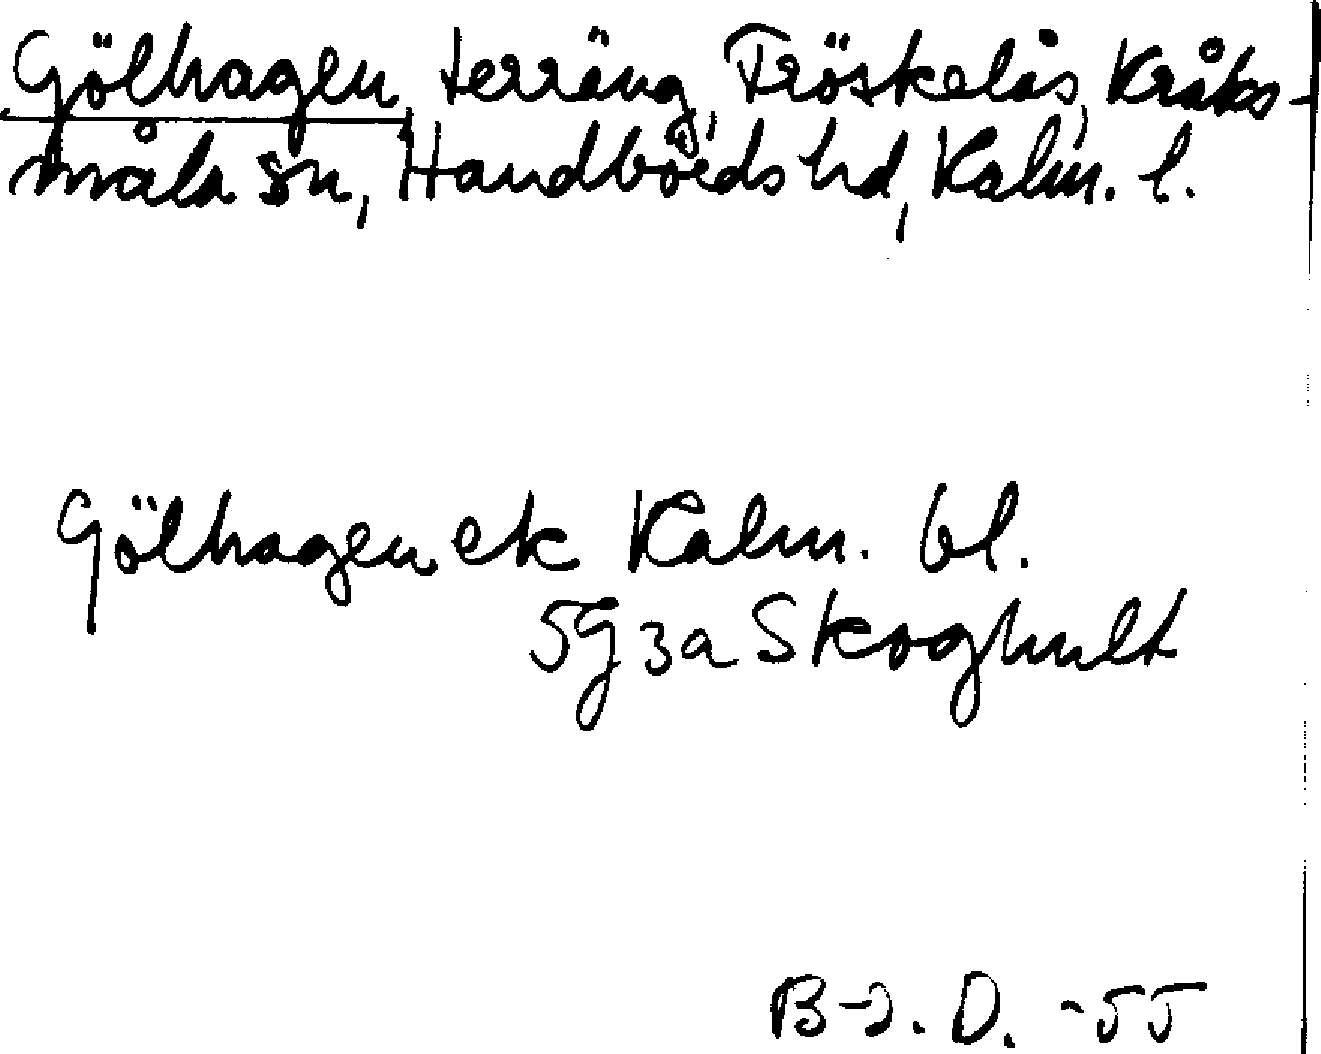 Gölhagen, terräng, Fröskelås, Kråks-
måla sn, Handbörds hd, Kalm. l.
Gölhagen ek Kalm. bl.
5G3a Skoghult
B-J. D. -55